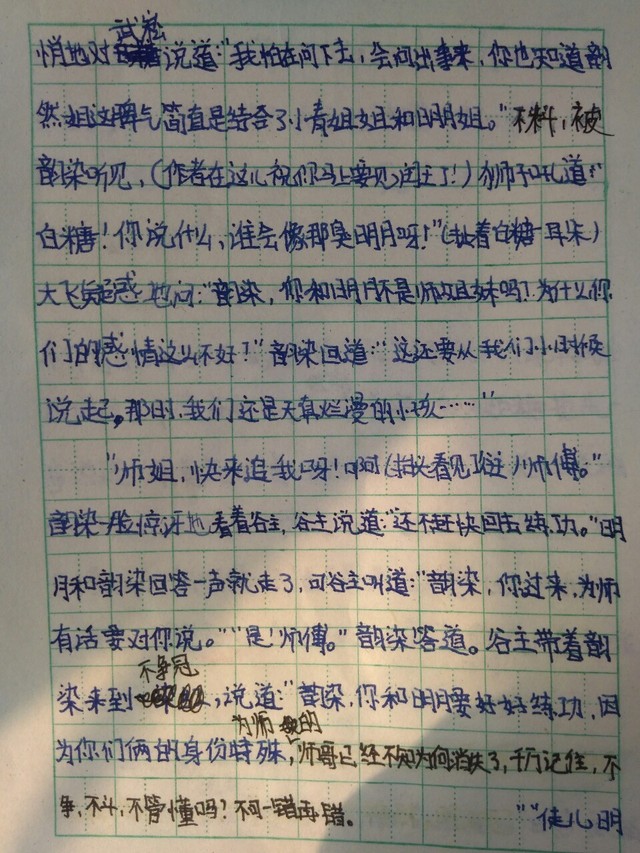 武崧
悄地对说道:"我怕在问下去,会问出事来,你也知道韵
然姐这脾气简直是结合了小青姐姐和明月姐。"不料,被
韵染听见,(作者在这儿祝你马上要见阎王了!)狮子吼道:"
白糖!你说什么,谁会像那臭明月呀!"(扯着白糖一耳朵)
大飞疑惑地问:"韵染,你和明月不是师姐妹吗?为什么你
们的感情这么不好!"韵染回道:"这还要从我们小时候
说起。那时,我们还是天真烂漫的小孩……"
"师姐,快来追我呀!啊(抬头看见)师傅。"
韵染一脸惊讶地看着谷主,谷主说道:"还不赶快回去练功。"明
月和韵染回答一声就走了,可谷主叫道:"韵染,你过来,为师
有话要对你说。""是!师傅。"韵染答道。谷主带着韵
不争冠
染来到,说道:"韵染,你和明月要好好练功,因
为师的
为你们俩的身份特殊,师哥已经不知为何消失了,千万记住,不
争,不斗,不管懂吗?不可一错再错。
""徒儿明